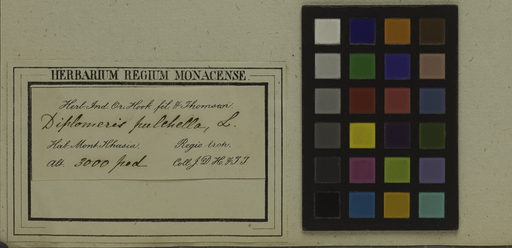 HERBARIUM REGIUM MONACENSE
Herb. Ind. Or. Hook. fil. & Thomson.
Diplomeris pulchella, L.
Hab. Mont. Khasia. Regio trop.
Alt. 3000 ped. Coll. J. D. H. & T. T.